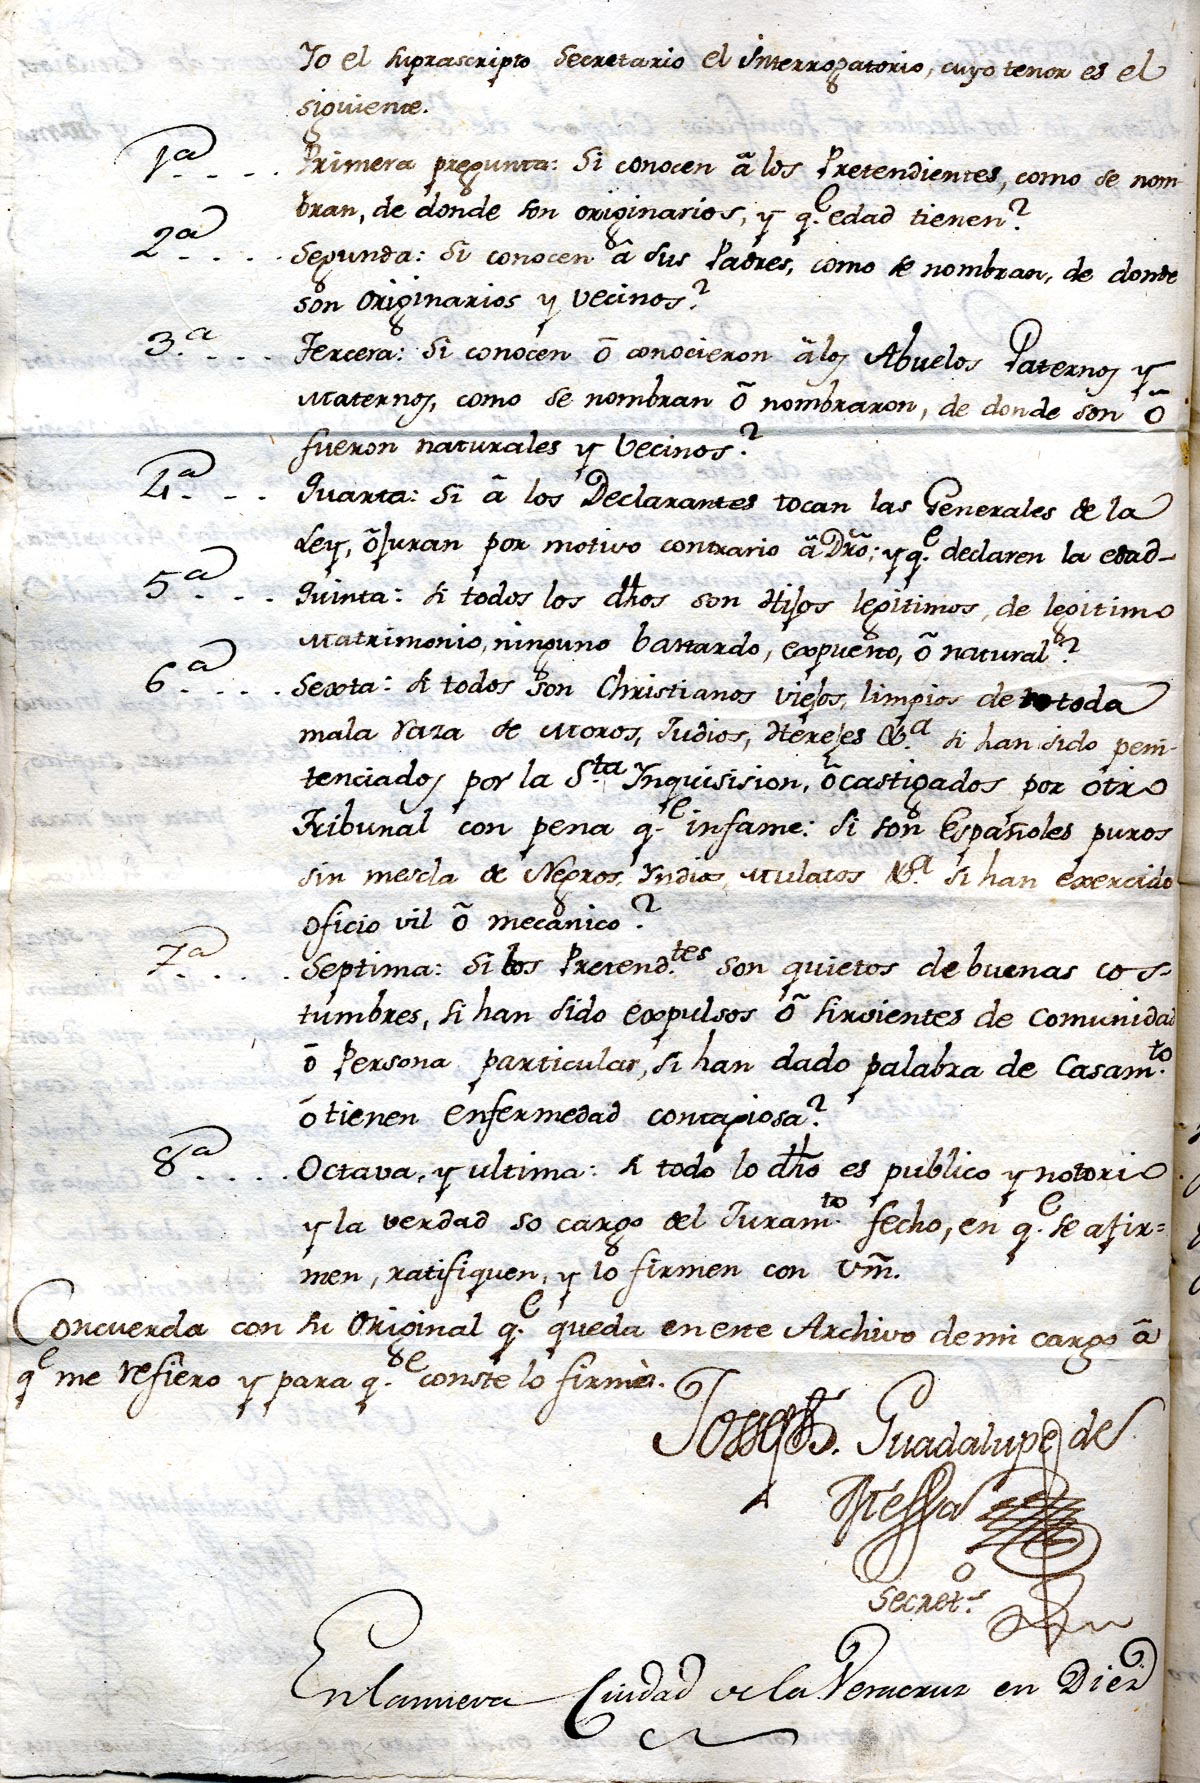 Yo el suprascripto Secretario el Interrogatorio, cuyo tenor es el
siguiente.
1ª.... Primera pregunta: Si conocen â los Pretendientes, como se nom
bran, de donde son originarios, y q.e edad tienen?
2ª.... Segunda: Si conocen â sus Padres, como se nombran, de donde
son originarios y vecinos?
3.ª... Tercera: Si conocen ô conocieron â los Abuelos Paternos y
Maternos, como se nombran ô nombraron, de donde son ô
fueron naturales y Vecinos?
4ª... Quarta: Si â los Declarantes tocan las Generales de la
Ley, ô juran por motivo contrario â Dro; y q.e declaren la edad-
5ª... Quinta: si todos los dhos son Hijos legitimos, de legitimo
Matrimonio, ninguno bastardo, expuesto, ô natural?
6ª.... Sexta: si todos son Christianos viejos, limpios de toda
mala raza de Moros, Judios, Herejes &.ª si han sido peni-
tenciados por la S.ta Ynquisision, ô castigados por otro
Tribunal con pena q.e infame: Si son Españoles puros
sin mescla de Negros, Yndios, Mulatos &.ª si han exercido
oficio vil ô mecanico?
7ª.... Septima: Si los Pretend.tes son quietos de buenas cos-
tumbres, si han sido expulsos ô sirvientes de Comunidad
ô Persona particular, si han dado palabra de Casam.to
ô tienen enfermedad contagiosa?
8ª.... Octava, y ultima: si todo lo dho es publico y notorio
y la verdad so cargo del Juram.to fecho, en q.e se afir=
men, ratifiquen, y lo firmen con Vm.
Concuerda con su Original q.e queda en este Archivo de mi cargo â
q.e me refiero y para q.e conste lo firmè.
Joseph. Guadalupe de
Messa
Secret.o
En la nueva Ciudad de la Veracruz en Diez